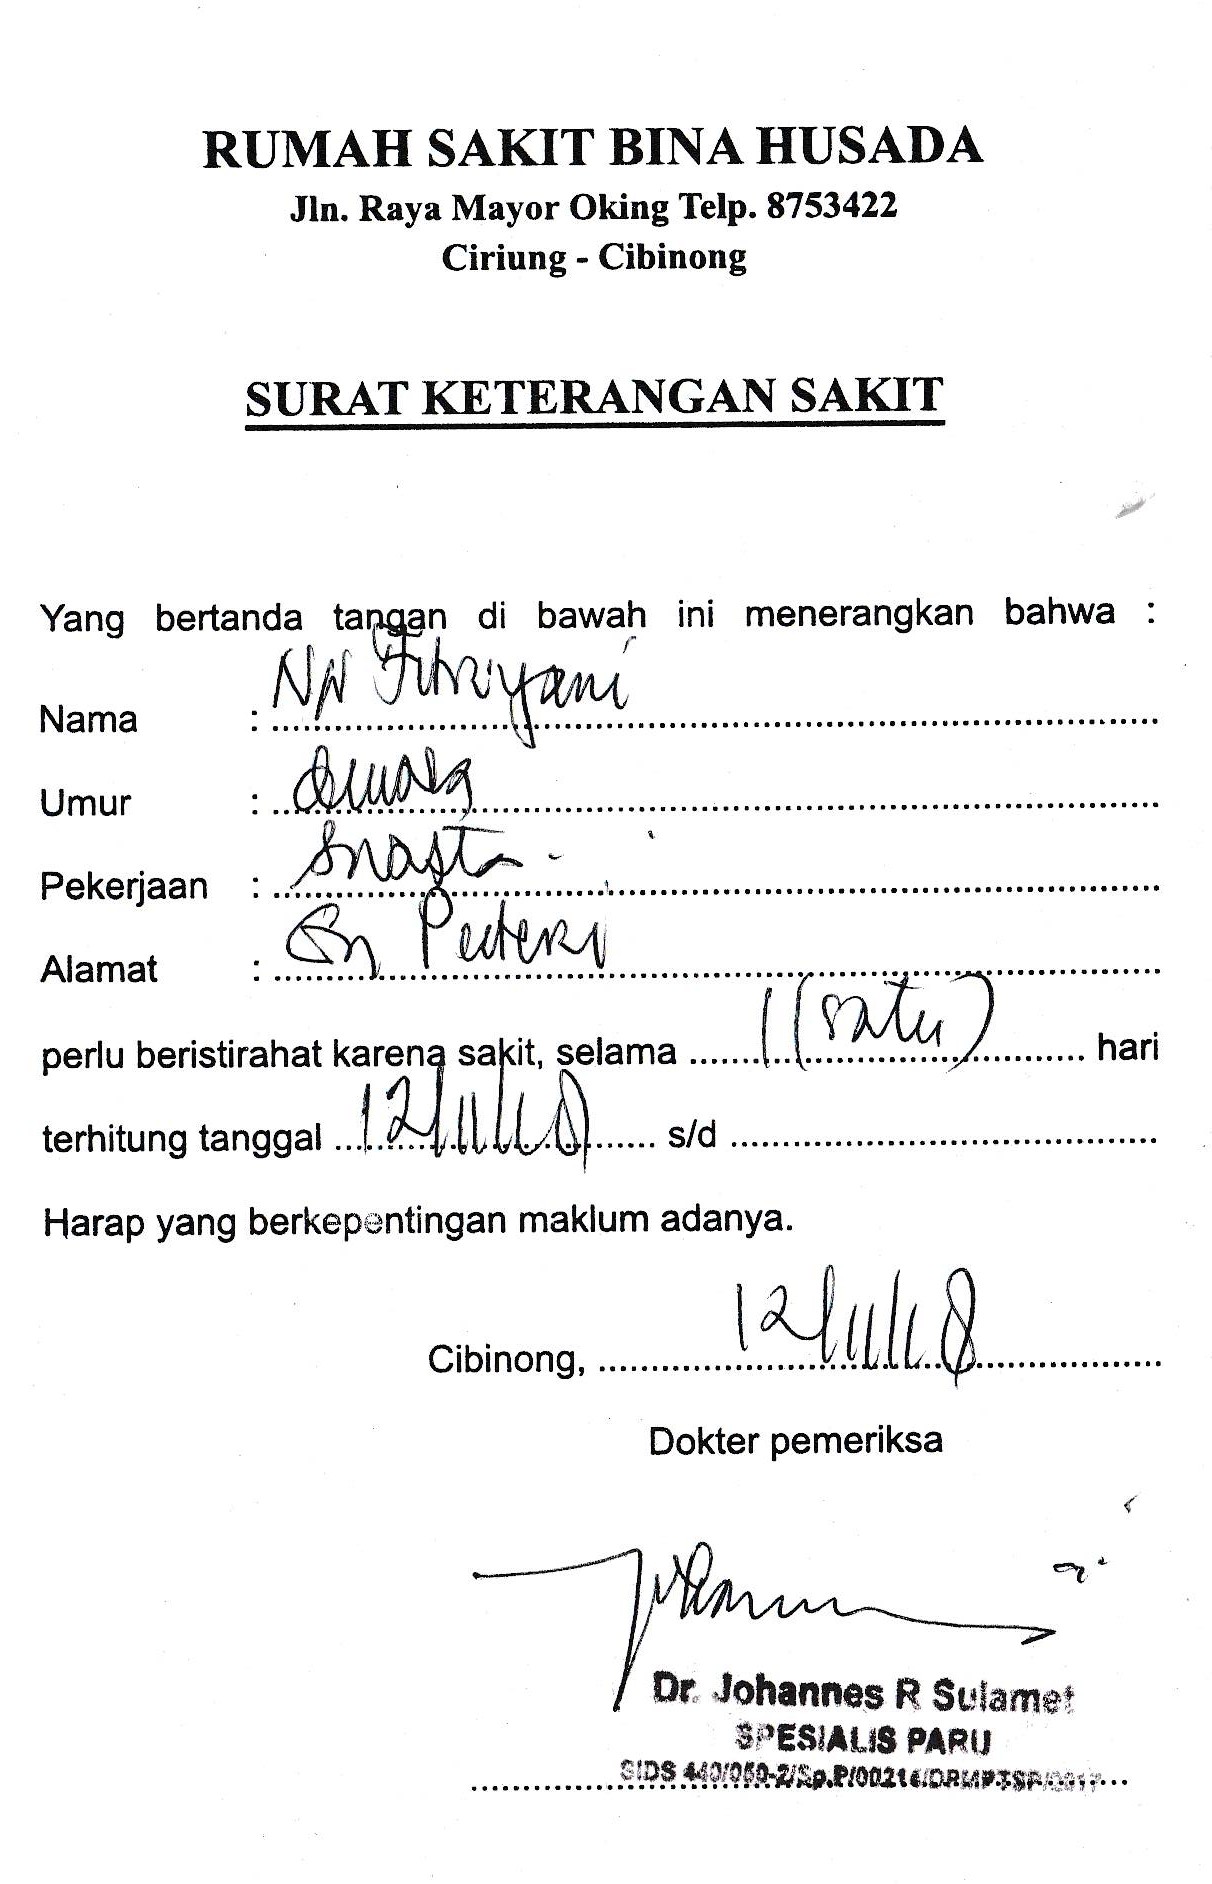 RUMAH SAKIT BINA HUSADA
Jln. Raya Mayor Oking Telp. 8753422
Ciriung - Cibinong
SURAT KETERANGAN SAKIT
Yang bertanda tangan di bawah ini menerangkan bahwa :
Nama : Ny Fitriyani
Umur : dewasa
Pekerjaan : swasta -
Alamat : Gn Puteri
perlu beristirahat karena sakit, selama 1 (satu) hari
terhitung tanggal 12/11/18 s/d
Harap yang berkepentingan maklum adanya.
Cibinong, 12/11/18
Dokter pemeriksa
Dr. Johannes R Sulamet
SPESIALIS PARU
SIDS 440/050-2/Sp.P/00216/